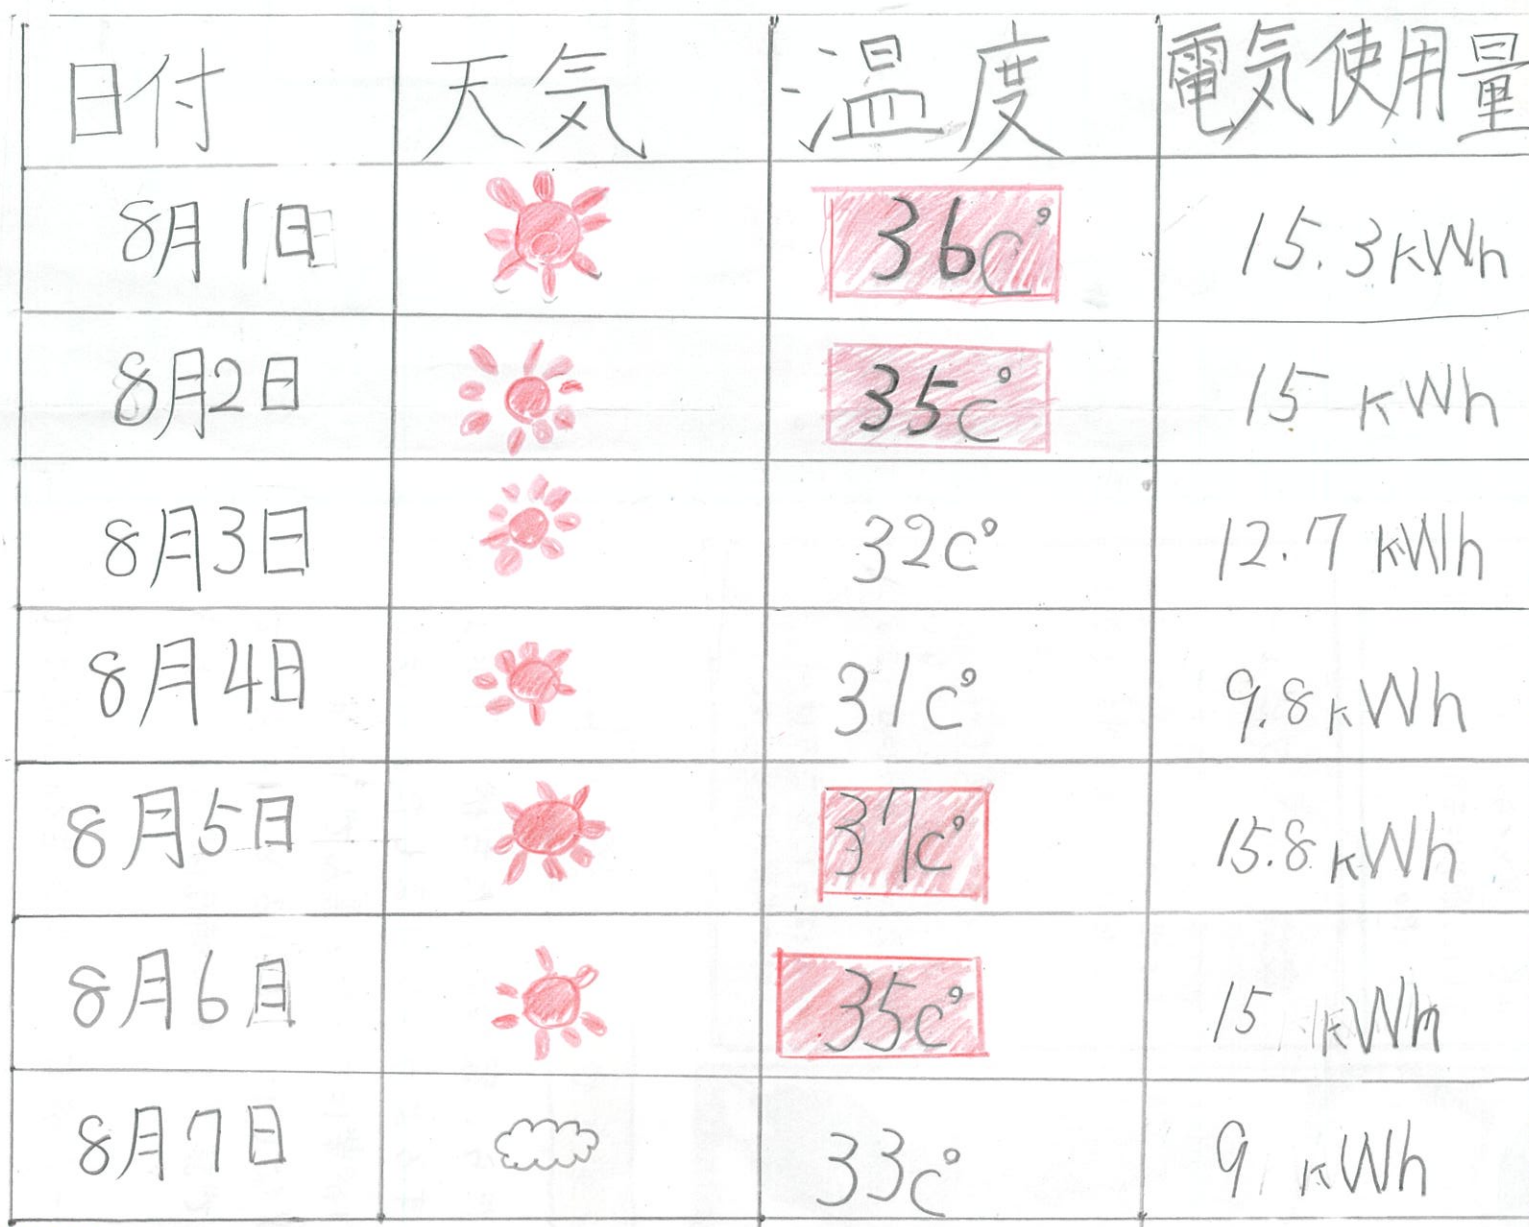 日付 天気 温度 電気使用量
8月1日 36c° 15.3kWh
8月2日 35c° 15 kWh
8月3日 32c° 12.7 kWh
8月4日 31c° 9.8kWh
8月5日 37c° 15.8kWh
8月6日 35c° 15 kWh
8月7日 33c° 9 kWh